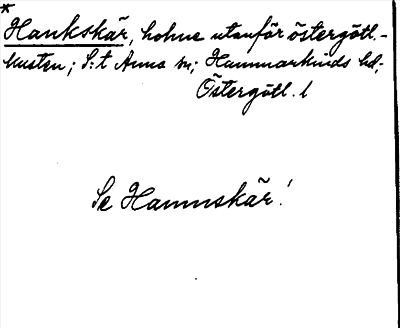 *
Hankskär, holme utanför östergötl.-
kusten; S:t Anna sn; Hammarkinds hd;
Östergötl. l
Se Hamnskär!